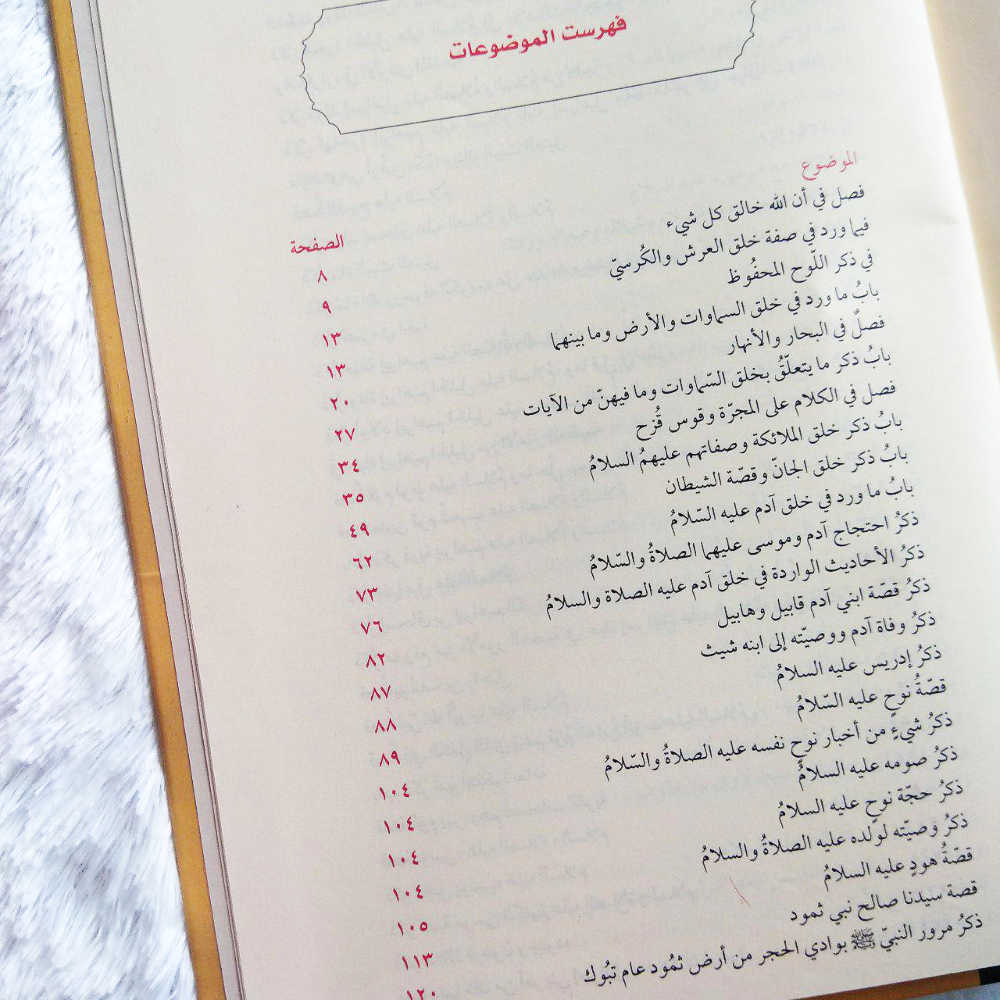 فهرست الموضوعات
الموضوع الصفحة
فصل في أن الله خالق كل شيء ٨
فيما ورد في صفة خلق العرش والكُرسيّ ٩
في ذكر اللّوح المحفُوظ ١٣
بابُ ما ورد في خلق السماوات والأرض وما بينهما ١٣
فصلٌ في البحار والأنهار ٢٠
بابُ ذكر ما يتعلّقُ بخلق السّماوات وما فيهنّ من الآيات ٢٧
فصل في الكلام على المجرّة وقوس قُزح ٣٤
بابُ ذكر خلق الملائكة وصفاتهم عليهمُ السلامُ ٣٥
بابُ ذكر خلق الجانّ وقصّة الشيطان ٤٩
بابُ ما ورد في خلق آدم عليه السّلامُ ٦٢
ذكرُ احتجاج آدم وموسى عليهما الصلاةُ والسّلامُ ٧٣
ذكرُ الأحاديث الواردة في خلق آدم عليه الصلاة والسلامُ ٧٦
ذكرُ قصّة ابني آدم قابيل وهابيل ٨٢
ذكرُ وفاة آدم ووصيّته إلى ابنه شيث ٨٧
ذكرُ إدريس عليه السلامُ ٨٨
قصّةُ نوحٍ عليه السّلامُ ٨٩
ذكرُ شيءٍ من أخبار نوحٍ نفسه عليه الصلاةُ والسّلامُ ١٠٤
ذكرُ صومه عليه السلامُ ١٠٤
ذكرُ حجّة نوحٍ عليه السلامُ ١٠٤
ذكرُ وصيّته لولده عليه الصلاةُ والسلامُ ١٠٤
قصّةُ هودٍ عليه السلامُ ١٠٥
قصة سيدنا صالح نبي ثمود ١١٣
ذكرُ مرور النبيّ ﷺ بوادي الحجر من أرض ثمُود عام تبُوك ١٢٠